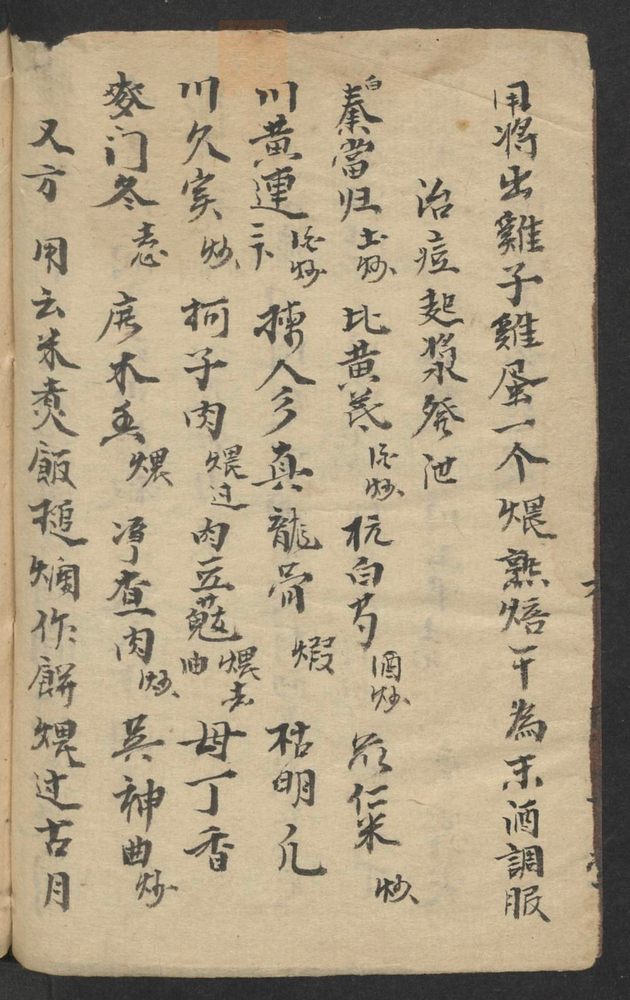 用將出雞子雞蛋一个煨熟焙干為末酒調服
治痘起漿發泄
白秦當归土炒 北黄芪 炒 杭白芍酒炒 仁米炒
川黄連 炒 揀人参 真龍骨煅 枯明几
川久実炒 柯子肉煨过 肉豆蔻煨去油 母丁香
麥门冬去心 唐木香煨 净查肉炒 英神曲炒
又方 用云米煑飯搥爛作餅煨过古月